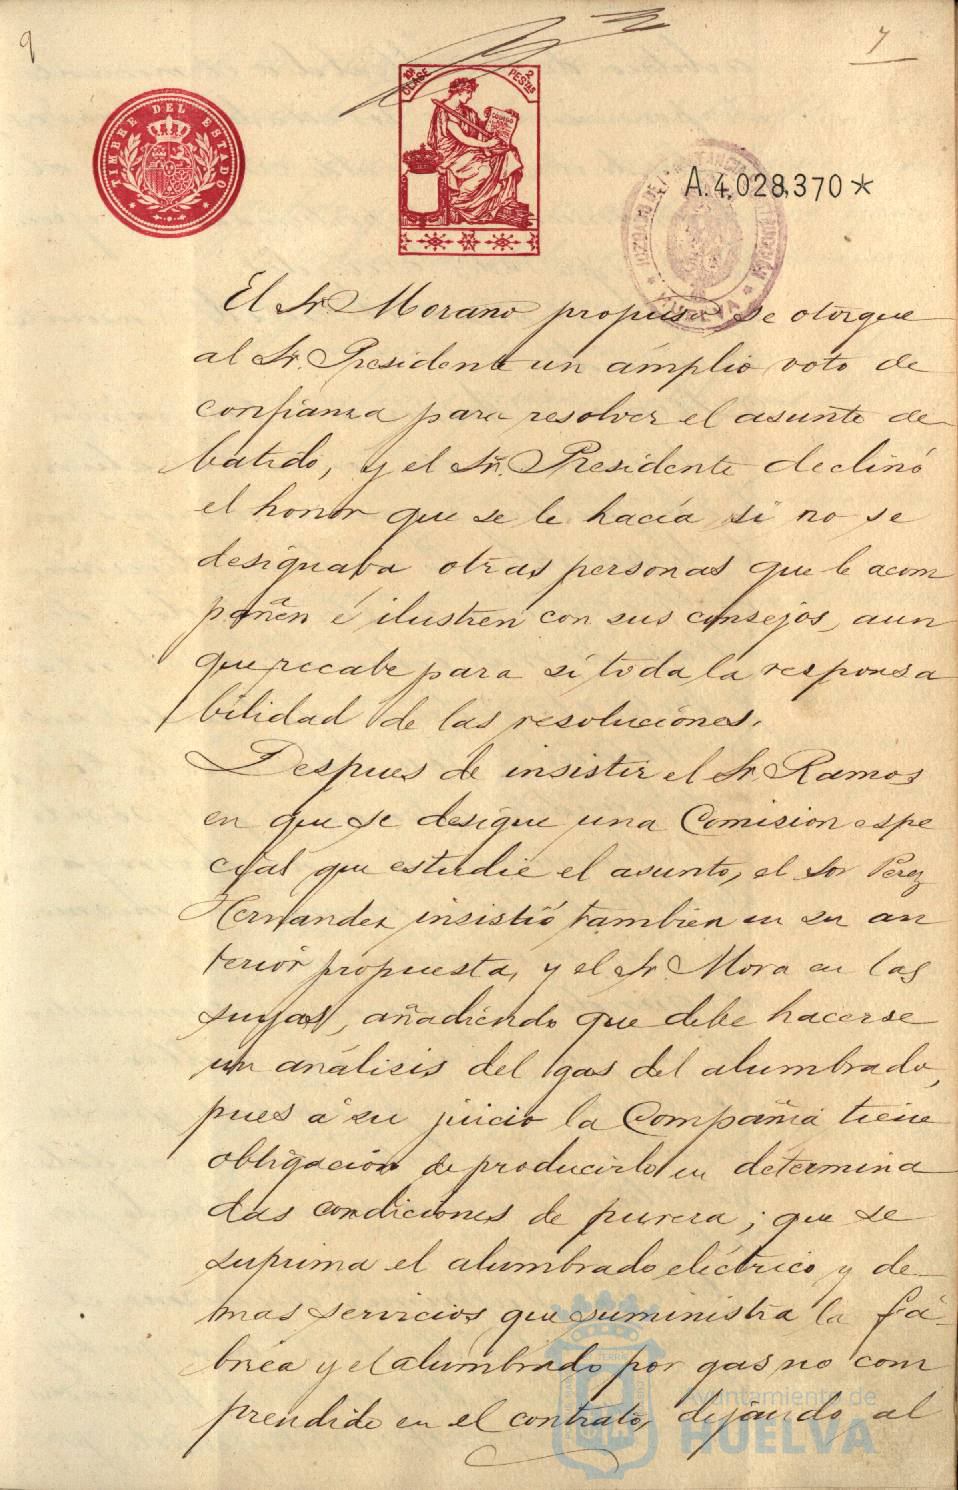 9
7
TIMBRE DEL ESTADO
10ª CLASE
2 PESETAS
A.4,028,370*
JUZGADO DE 1ª INSTANCIA
HUELVA
El Sr. Morano propuso se otorgue
al Sr. Presidente un ámplio voto de
confianza para resolver el asunto de
batido, y el Sr. Presidente declinó
el honor que se le hacía si no se
designaba otras personas que le acom
pañen é ilustren con sus consejos, aun
que recabe para sí toda la responsa
bilidad de las resoluciones.
Despues de insistir el Sr. Ramos
en que se designe una Comision espe
cial que estudie el asunto, el Sor Perez
Hernandez insistió tambien en su an
terior propuesta, y el Sr. Mora en las
suyas, añadiendo que debe hacerse
un análisis del gas del alumbrado,
pues á su juicio la Compañia tiene
obligación de producirlo en determina
das condiciones de pureza; que se
suprima el alumbrado eléctrico y de-
mas servicios que suministra la fá-
brica y el alumbrado por gas no com
prendido en el contrato, dejando al
Ayuntamiento de
HUELVA